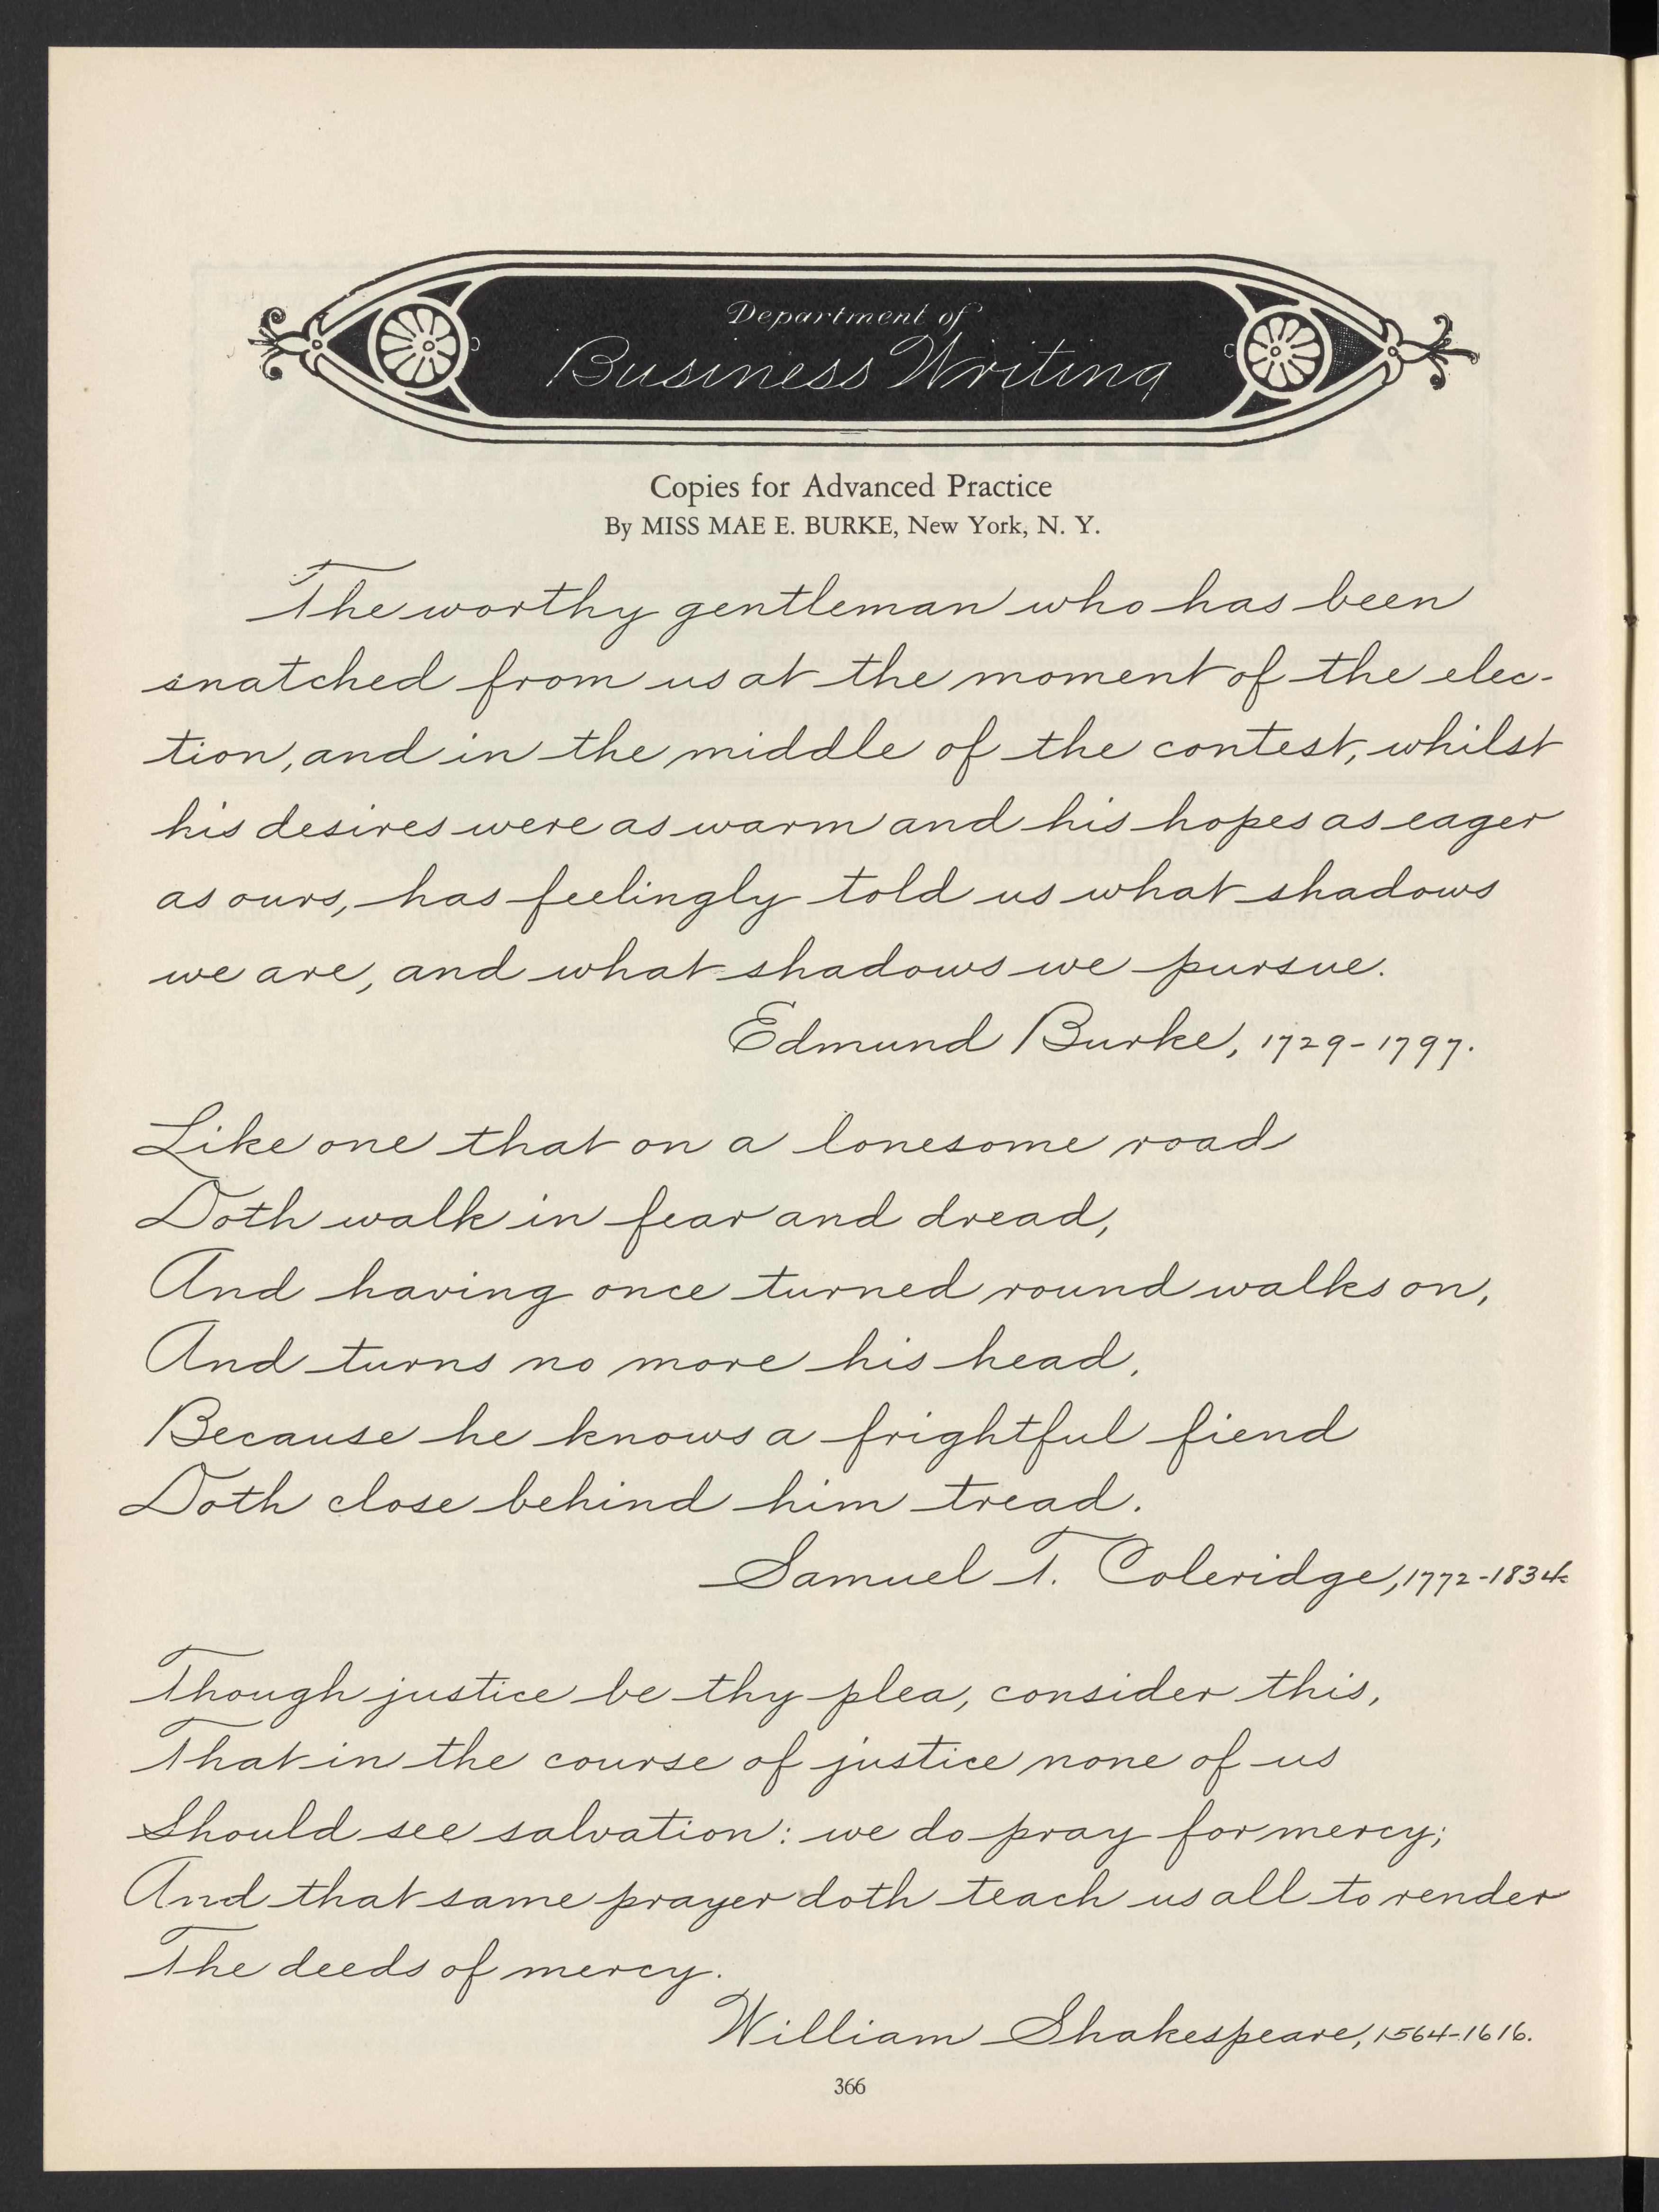 Department of
Business Writing
Copies for Advanced Practice
By MISS MAE E. BURKE, New York, N. Y.
The worthy gentleman who has been
snatched from us at the moment of the elec-
tion, and in the middle of the contest, whilst
his desires were as warm and his hopes as eager
as ours, has feelingly told us what shadows
we are, and what shadows we pursue.
Edmund Burke, 1729-1797.
Like one that on a lonesome road
Doth walk in fear and dread,
And having once turned round walks on,
And turns no more his head,
Because he knows a frightful fiend
Doth close behind him tread.
Samuel T. Coleridge, 1772-1834
Though justice be thy plea, consider this,
That in the course of justice none of us
Should see salvation: we do pray for mercy;
And that same prayer doth teach us all to render
The deeds of mercy.
William Shakespeare, 1564-1616.
366